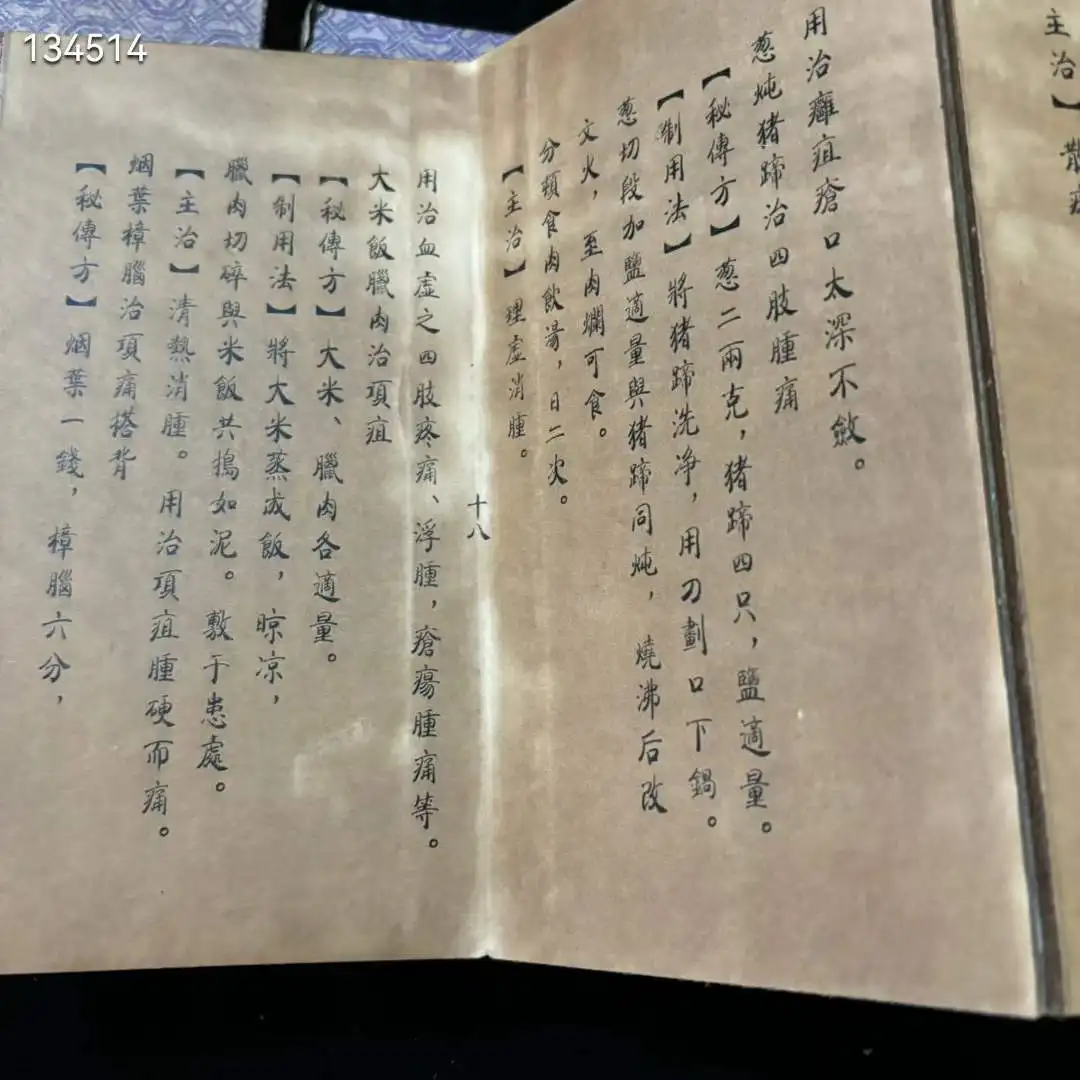 134514
主治】散
用治癰疽瘡口太深不斂。
葱炖猪蹄治四肢腫痛
【秘傳方】葱二兩克，猪蹄四只，鹽適量。
【制用法】將猪蹄洗净，用刀劃口下鍋。
葱切段加鹽適量與猪蹄同炖，燒沸后改
文火，至肉爛可食。
分頓食肉飲湯，日二次。
【主治】理虚消腫。
十八
用治血虚之四肢疼痛、浮腫，瘡瘍腫痛等。
大米飯臘肉治項疽
【秘傳方】大米、臘肉各適量。
【制用法】將大米蒸成飯，晾凉，
臘肉切碎與米飯共搗如泥。敷于患處。
【主治】清熱消腫。用治項疽腫硬而痛。
烟葉樟腦治項痛搭背
【秘傳方】烟葉一錢，樟腦六分，